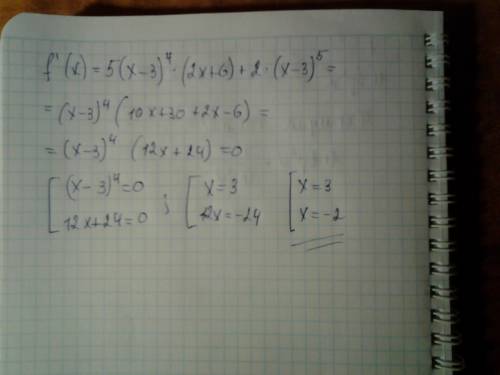 f'(x) = 5(x-3)⁴·(2x+6) + 2·(x-3)⁵ =
= (x-3)⁴ (10x+30+2x-6) =
= (x-3)⁴ (12x+24) = 0
[ (x-3)⁴=0 ; [ x=3 [ x=3
12x+24=0 12x=-24 x=-2